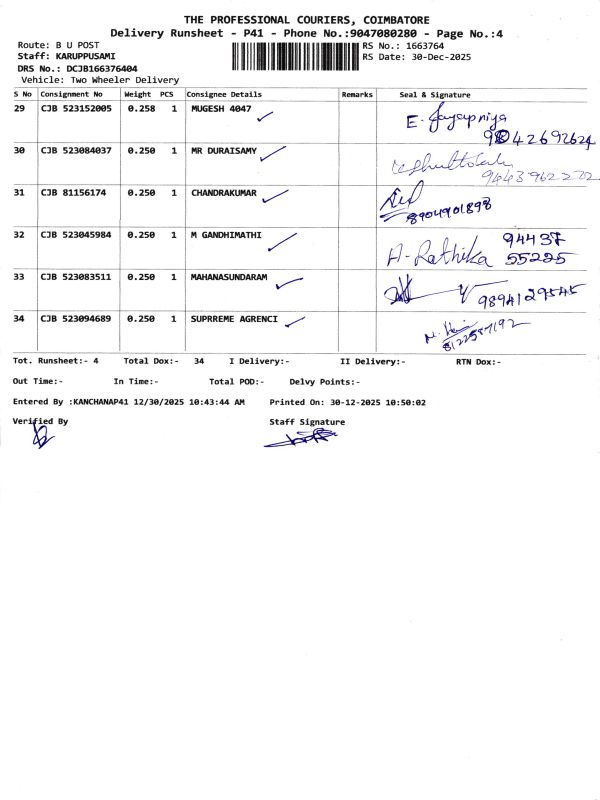 THE PROFESSIONAL COURIERS, COIMBATORE
Delivery Runsheet - P41 - Phone No.:9047080280 - Page No.:4
Route: B U POST
RS No.: 1663764
Staff: KARUPPUSAMI
RS Date: 30-Dec-2025
DRS No.: DCJB166376404
Vehicle: Two Wheeler Delivery
S No Consignment No Weight PCS Consignee Details Remarks Seal & Signature
29 CJB 523152005 0.258 1 MUGESH 4047 E. Jayapriya
30 CJB 523084037 0.250 1 MR DURAISAMY
9443962272
31 CJB 81156174 0.250 1 CHANDRAKUMAR
8904901898
32 CJB 523045984 0.250 1 M GANDHIMATHI A. Rathika 94437
55225
33 CJB 523083511 0.250 1 MAHANASUNDARAM
9894129545
34 CJB 523094689 0.250 1 SUPRREME AGRENCI
8122587192
Tot. Runsheet:- 4 Total Dox:- 34 I Delivery:- II Delivery:- RTN Dox:-
Out Time:- In Time:- Total POD:- Delvy Points:-
Entered By :KANCHANAP41 12/30/2025 10:43:44 AM Printed On: 30-12-2025 10:50:02
Verified By Staff Signature